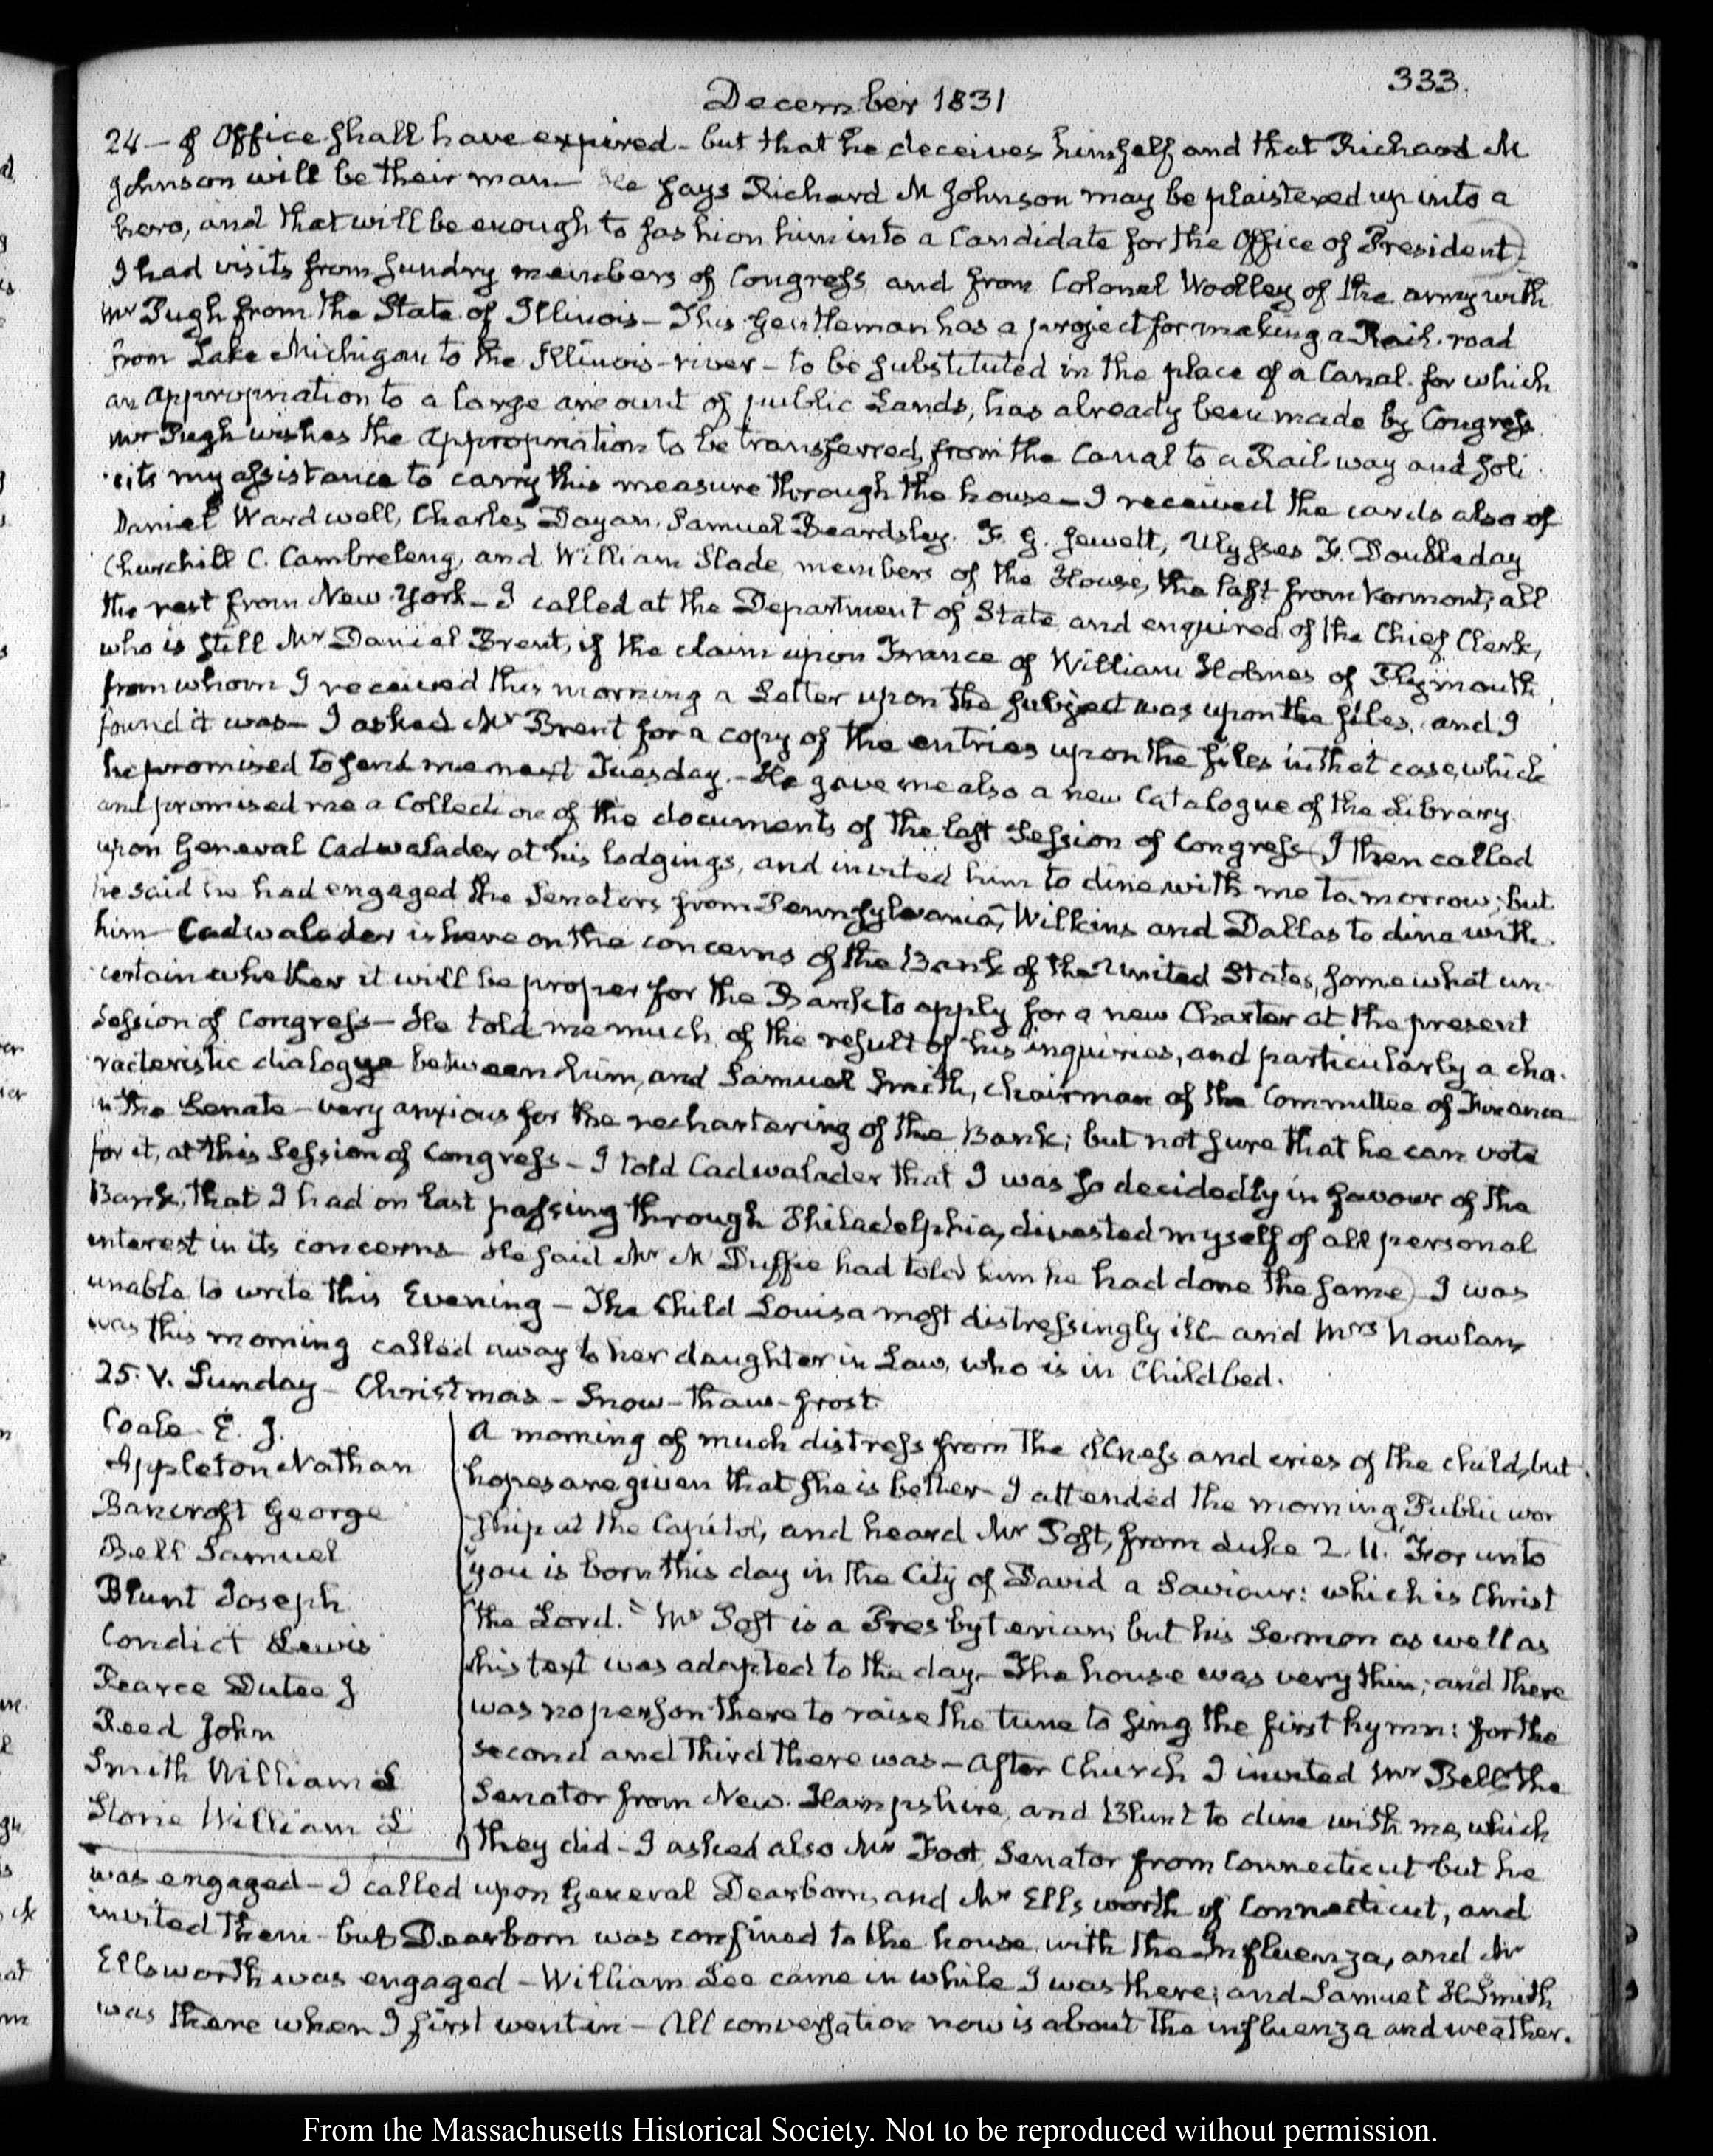 333.
December 1831
24 — of Office shall have expired — but that he deceives himself and that Richard M
Johnson will be their man — He says Richard M Johnson may be plaistered up into a
hero, and that will be enough to fashion him into a Candidate for the Office of President)
I had visits from sundry members of Congress, and from Colonel Woolley of the army with
Mr Pugh from the State of Illinois — This Gentleman has a project for making a Rail-road
from Lake Michigan to the Illinois-river — to be substituted in the place of a Canal. for which
an appropriation to a large amount of public Lands, has already been made by Congress
Mr Pugh wishes the appropriation to be transferred from the Canal to a Railway and soli-
cits my assistance to carry this measure through the house — I received the cards also of
Daniel Wardwell, Charles Dayan. Samuel Beardsley. F. G. Jewett, Ulysses F. Doubleday
Churchill C. Cambreleng, and William Slade, members of the House, the last from Vermont, all
the rest from New-York — I called at the Department of State and enquired of the Chief Clerk,
who is still Mr Daniel Brent, if the claim upon France of William Holmes of Plymouth
from whom I received this morning a Letter upon the subject was upon the files, and I
found it was — I asked Mr Brent for a copy of the entries upon the files in that case, which
he promised to send me next Tuesday. — He gave me also a new Catalogue of the Library
and promised me a Collection of the documents of the last Session of Congress — I then called
upon General Cadwalader at his lodgings, and invited him to dine with me to-morrow; but
he said he had engaged the Senators from Pennsylvania, Wilkins and Dallas to dine with
him — Cadwalader is here on the concerns of the Bank of the United States, somewhat un-
certain whether it will be proper for the Bank to apply for a new Charter at the present
Session of Congress — He told me much of the result of his inquiries, and particularly a cha-
racteristic dialogue between him, and Samuel Smith, chairman of the Committee of Finance
in the Senate — very anxious for the rechartering of the Bank; but not sure that he can vote
for it, at this Session of Congress — I told Cadwalader that I was so decidedly in favour of the
Bank, that I had on last passing through Philadelphia, divested myself of all personal
interest in its concerns — He said Mr McDuffie had told him he had done the same) I was
unable to write this Evening — The Child Louisa most distressingly ill — and Mrs Nowlan,
was this morning called away to her daughter in Law, who is in Childbed.
25. V. Sunday — Christmas — Snow — thaw — frost.
Coale. E. J.
Appleton Nathan
Bancroft George
Bell Samuel
Blunt Joseph
Condict Lewis
Pearce Dutee J
Reed John
Smith William L
Stone William L
A morning of much distress from the illness and cries of the child, but
hopes are given that she is better — I attended the morning Public wor
ship at the Capitol, and heard Mr Post, from Luke 2. 11. "For unto
"you is born this day in the City of David a Saviour: which is Christ
"the Lord." Mr Post is a Presbyterian; but his Sermon as well as
his text was adapted to the day — The house was very thin; and there
was no person there to raise the tune to sing the first hymn: for the
second and third there was — After Church I invited Mr Bell the
Senator from New-Hampshire, and Blunt to dine with me, which
they did — I asked also Mr Foot, Senator from Connecticut but he
was engaged — I called upon General Dearborn, and Mr Ellsworth of Connecticut, and
invited them — but Dearborn was confined to the house with the Influenza, and Mr
Ellsworth was engaged — William Lee came in while I was there; and Samuel H Smith
was there when I first went in — All conversation now is about the influenza and weather.
From the Massachusetts Historical Society. Not to be reproduced without permission.